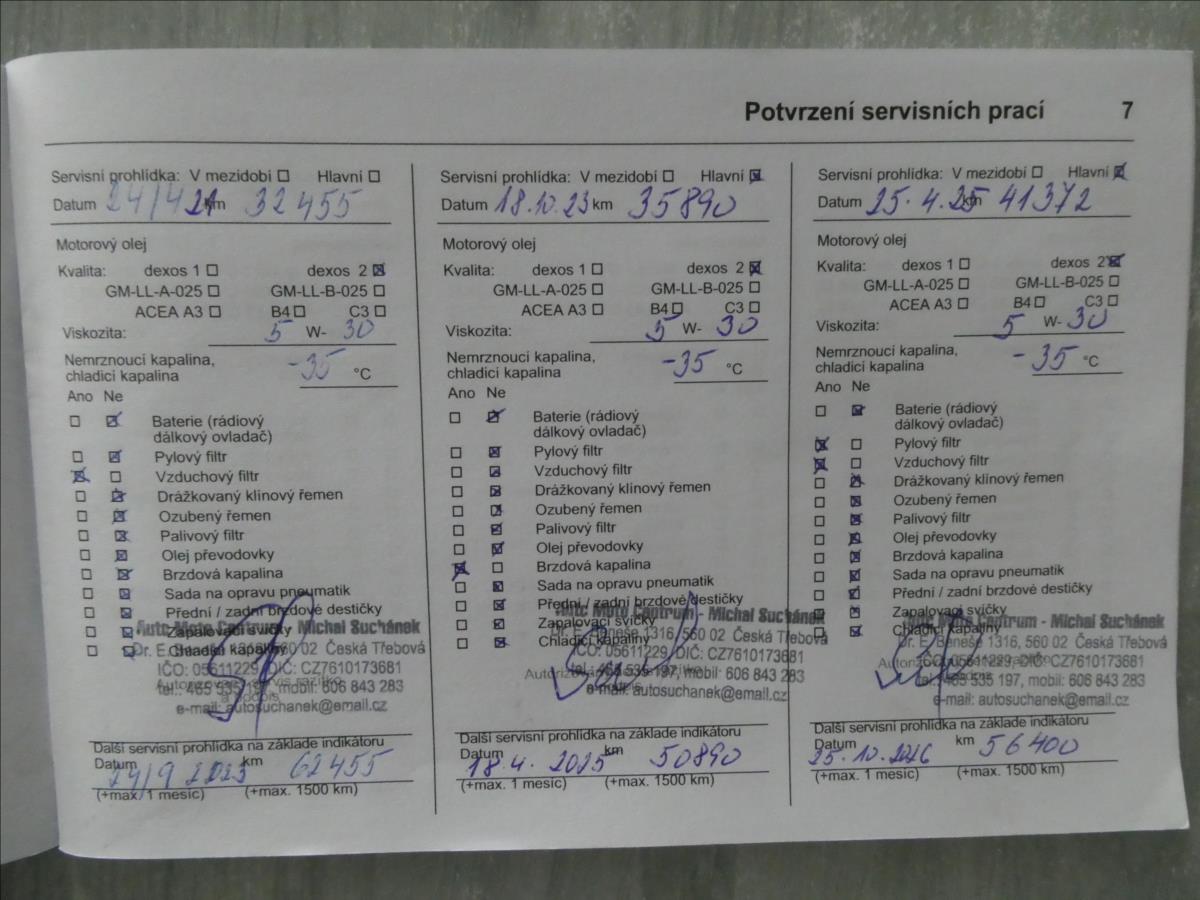 Potvrzení servisních prací 7
Servisní prohlídka: V mezidobí Hlavní
Datum 24/4 21 km 32 455
Motorový olej
Kvalita: dexos 1 dexos 2
GM-LL-A-025 GM-LL-B-025
ACEA A3 B4 C3
Viskozita: 5 W- 30
Nemrznoucí kapalina,
chladicí kapalina -35 °C
Ano Ne
Baterie (rádiový
dálkový ovladač)
Pylový filtr
Vzduchový filtr
Drážkovaný klínový řemen
Ozubený řemen
Palivový filtr
Olej převodovky
Brzdová kapalina
Sada na opravu pneumatik
Přední / zadní brzdové destičky
Zapalovací svíčky
Chladicí kapaliny
Auto Moto Centrum - Michal Suchánek
Dr. E. Beneše 1316, 560 02 Česká Třebová
IČO: 05611229, DIČ: CZ7610173681
tel.: 465 535 197, mobil: 606 843 283
e-mail: autosuchanek@email.cz
Další servisní prohlídka na základe indikátoru
Datum 24/9 2023 km 62455
(+max. 1 mesíc) (+max. 1500 km)
Servisní prohlídka: V mezidobí Hlavní
Datum 18.10.23 km 35890
Motorový olej
Kvalita: dexos 1 dexos 2
GM-LL-A-025 GM-LL-B-025
ACEA A3 B4 C3
Viskozita: 5 W- 30
Nemrznoucí kapalina,
chladicí kapalina -35 °C
Ano Ne
Baterie (rádiový
dálkový ovladač)
Pylový filtr
Vzduchový filtr
Drážkovaný klínový řemen
Ozubený řemen
Palivový filtr
Olej převodovky
Brzdová kapalina
Sada na opravu pneumatik
Přední / zadní brzdové destičky
Zapalovací svíčky
Chladicí kapaliny
Auto Moto Centrum - Michal Suchánek
Dr. E. Beneše 1316, 560 02 Česká Třebová
IČO: 05611229, DIČ: CZ7610173681
tel.: 465 535 197, mobil: 606 843 283
e-mail: autosuchanek@email.cz
Další servisní prohlídka na základe indikátoru
Datum 18.4. 2025 km 50890
(+max. 1 mesíc) (+max. 1500 km)
Servisní prohlídka: V mezidobí Hlavní
Datum 25.4.25 km 41372
Motorový olej
Kvalita: dexos 1 dexos 2
GM-LL-A-025 GM-LL-B-025
ACEA A3 B4 C3
Viskozita: 5 W- 30
Nemrznoucí kapalina,
chladicí kapalina -35 °C
Ano Ne
Baterie (rádiový
dálkový ovladač)
Pylový filtr
Vzduchový filtr
Drážkovaný klínový řemen
Ozubený řemen
Palivový filtr
Olej převodovky
Brzdová kapalina
Sada na opravu pneumatik
Přední / zadní brzdové destičky
Zapalovací svíčky
Chladicí kapaliny
Auto Moto Centrum - Michal Suchánek
Dr. E. Beneše 1316, 560 02 Česká Třebová
IČO: 05611229, DIČ: CZ7610173681
tel.: 465 535 197, mobil: 606 843 283
e-mail: autosuchanek@email.cz
Další servisní prohlídka na základe indikátoru
Datum 25.10.2026 km 56400
(+max. 1 mesíc) (+max. 1500 km)